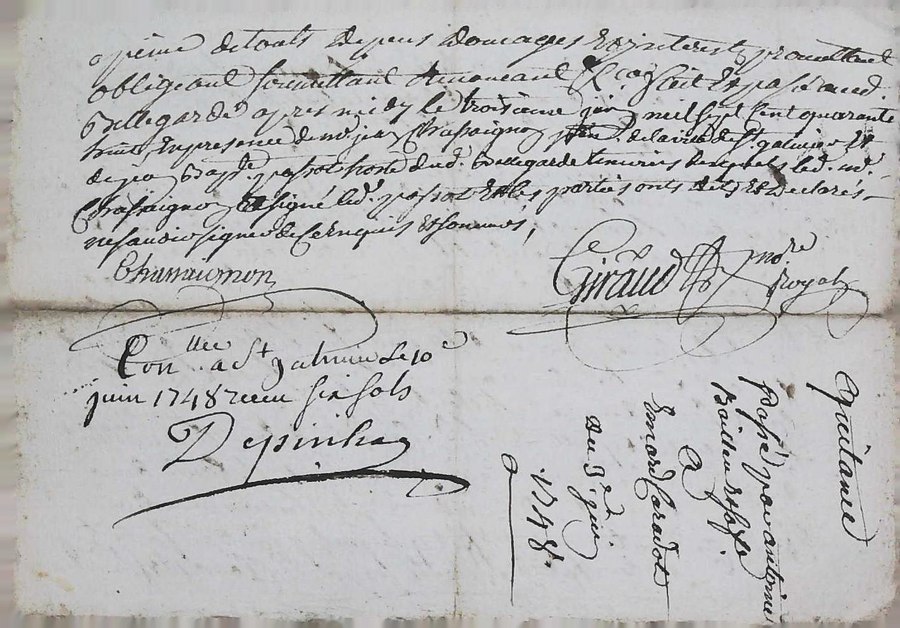 apeine detouts depens domages Et jnterest promettant
obligeant soumettant Renonceant &ca fait Et passé aud.
Bellegarde apres midy le troisieme juin mil sept Cent quarante
huit En presence de mr jean Chassaignon de la ville de St. galmier Et
de jean bapte. passot hoste dud. Bellegarde temoins lesquels led. mr.
Chassaignon a signé led. passot Et les parties onts dit Et Declarés
ne savoir signer de Ce Enquis Et sommés,
Chassaignon
Giraud nore
Royal
Conllee a St galmier Le 10e
juin 1748 receu six sols
Depinhac
Quitance
passé par antoine
Bailleu
a
Emard Caradot
du 3e. juin
1748.